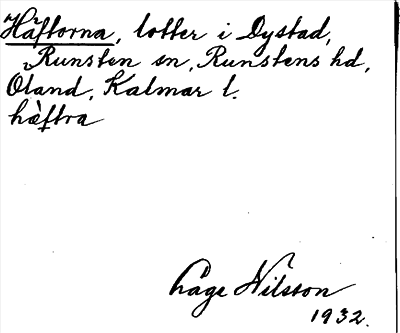 Häftorna, lotter i Dystad,
Runsten sn, Runstens hd,
Öland, Kalmar l.
hæ̀ftra
Åage Nilsson
1932.